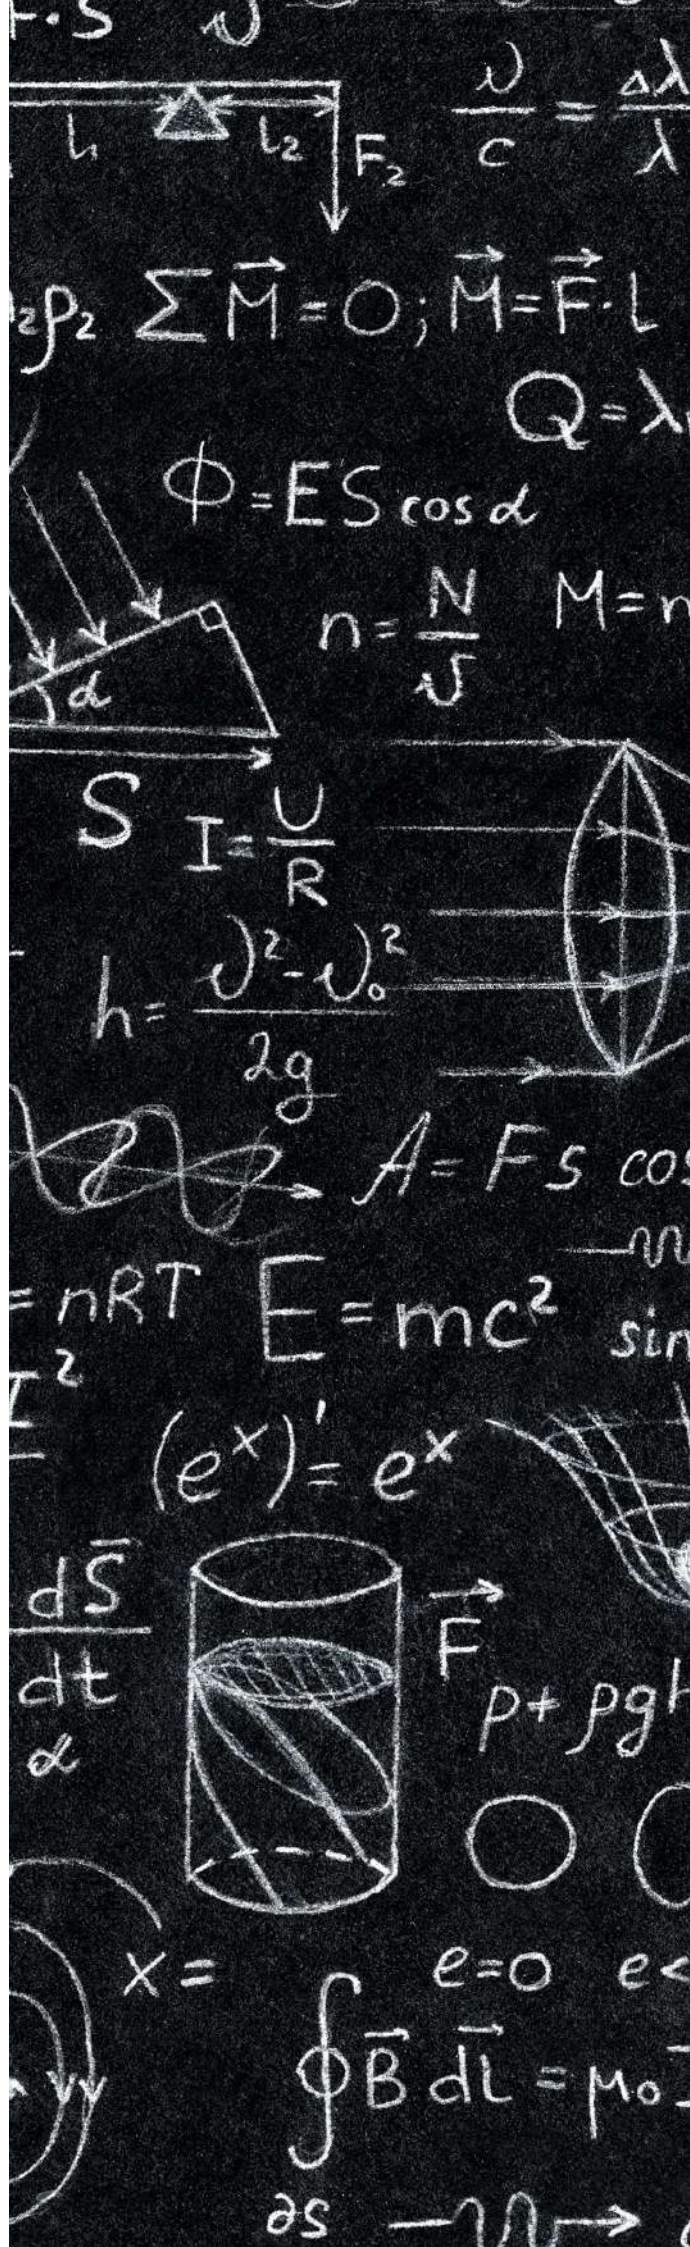 F·S υ
l₁ l₂ F₂
υ/c = Δλ/λ
₂ρ₂ ΣM⃗ = 0; M⃗ = F⃗·l
Q = λ
Φ = ES cos α
n = N/υ M =
α
S I = U/R
h = (υ² - υ₀²)/2g
A = Fs cos
= nRT E = mc² sin
I²
(eˣ)' = eˣ
dS̅/dt F⃗
p + ρgh
α
x = e=0 e<
∮B⃗ dl⃗ = μ₀
∂S